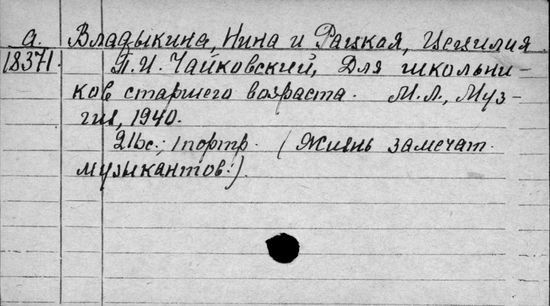 а. Владыкина, Нина и Рацкая, Цецилия
18371. П.И. Чайковский, Для школьни-
ков старшего возраста. М.Л., Муз-
гиз, 1940.
216с.; 1портр. (Жизнь замечат.
музыкантов.)